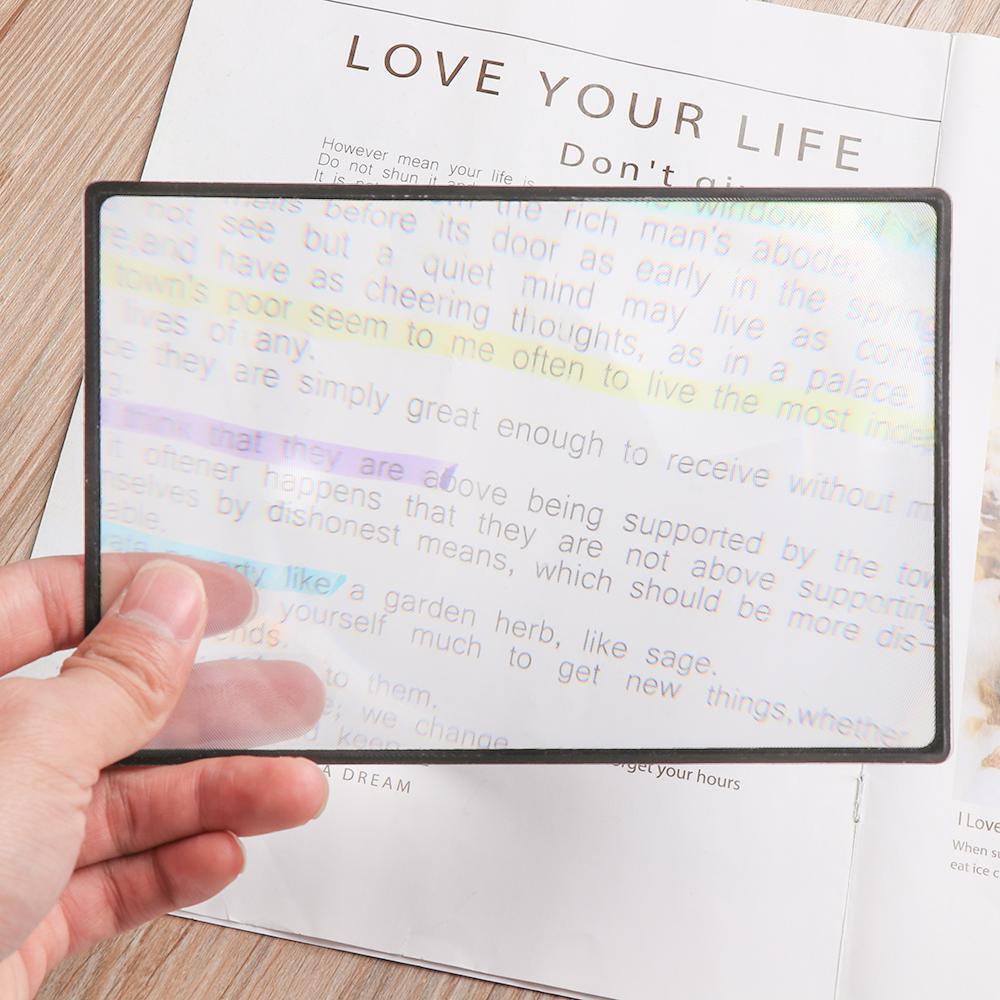 LOVE YOUR LIFE
Don't
However mean your life is
Do not shun it and
It is
melts before its door as early in the spring
the rich man's abode,
not see but a quiet mind may live as
and have as cheering thoughts, as in a palace.
town's poor seem to me often to live the most
lives of any.
they are simply great enough to receive without
think that they are above being supported by the
it oftener happens that they are not above supporting
by dishonest means, which should be more dis-
like a garden herb, like sage.
yourself much to get new things, whether
to them.
we change
A DREAM
your hours
I Love
When
eat ice